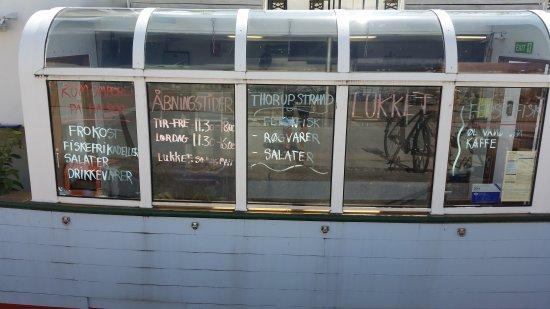 KUM
FROKOST
FISKEFRIKADELLER
SALATER
DRIKKEVARER
ÅBNINGSTIDER
TIR-FRE 11.30-18.00
LØRDAG 11.30-
LUKKET
THORUPSTRAND
FISK
- RØGVARER
SALATER
LUKKET
FISK
ØL VAND
KAFFE
EXIT